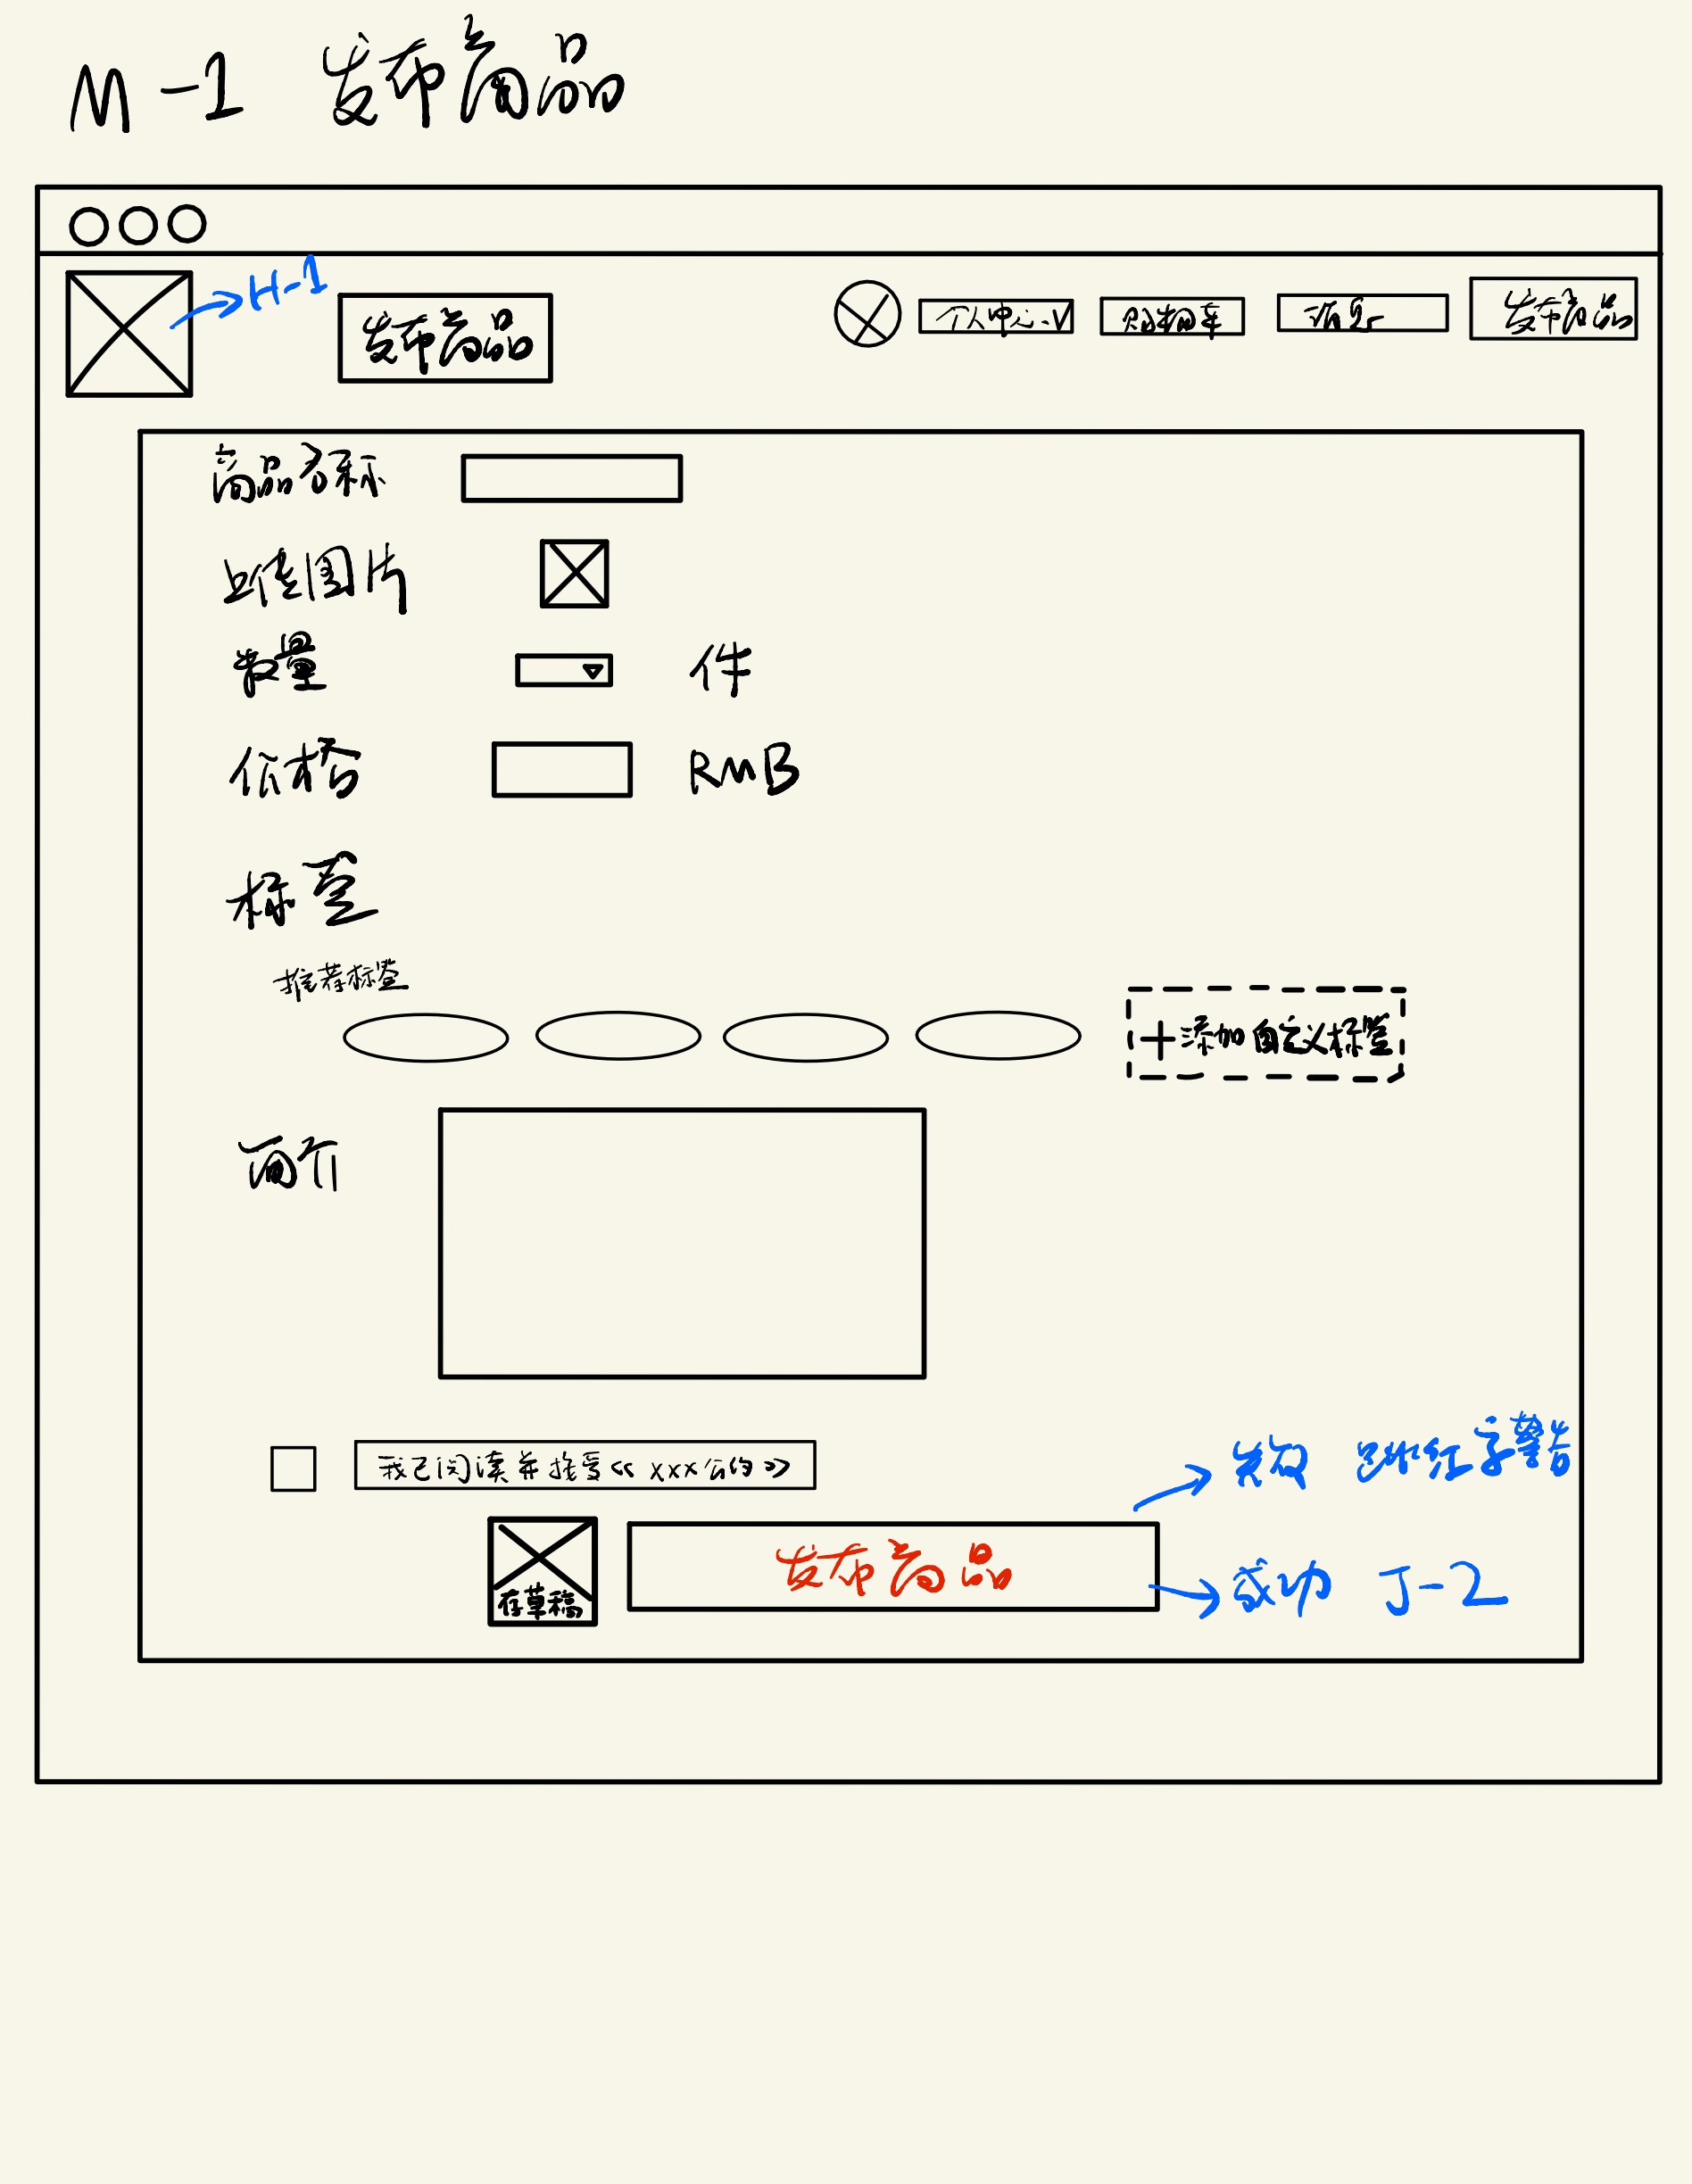 M-1 发布商品
H-1
发布商品 个人中心 购物车 消息 发布商品
商品名称
上传图片
数量 件
价格 RMB
标签
推荐标签
+添加自定义标签
简介
我已阅读并接受《xxx公约》
失败 跳红字警告
存草稿 发布商品
成功 J-2